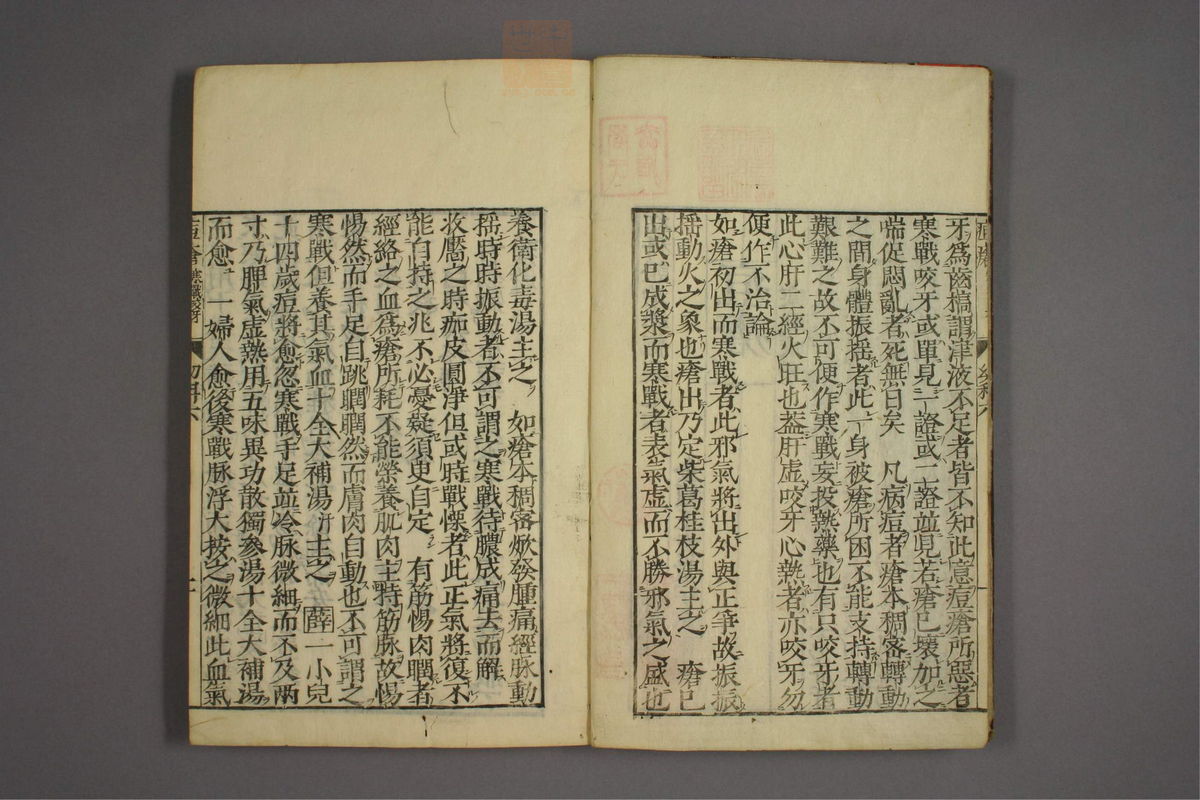 牙爲齒槁謂津液不足者皆不知此意痘瘡所惡者
寒戰咬牙或單見一證或二證並見若瘡已壞加之
喘促悶亂者死無日矣　凡病痘者瘡本稠密轉動
之間身體振搖者此一身被瘡所困不能支持轉動
艱難之故不可便作寒戰妄投熱藥也有只咬牙者
此心肝二經火旺也蓋肝虛咬牙心熱者亦咬牙勿
便作不治論
如瘡初出而寒戰者此邪氣將出外與正爭故振振
搖動火之象也瘡出乃定柴葛桂枝湯主之　瘡已
出或已成漿而寒戰者表氣虛而不勝邪氣之盛也
養衛化毒湯主之　如瘡本稠密焮發腫痛經脉動
搖時時振動者不可謂之寒戰待膿成痛去而解
收靨之時痂皮圓淨但或時戰慄者此正氣將復不
能自持之兆不必憂疑須臾自定　有筋惕肉瞤者
經絡之血爲瘡所耗不能榮養肌肉主持筋脉故惕
惕然而手足自跳瞤瞤然而膚肉自動也不可謂之
寒戰但養其氣血十全大補湯主之　薛　一小兒
十四歲痘將愈忽寒戰手足並冷脉微細而不及兩
寸乃脾氣虛熱用五味異功散獨參湯十全大補湯
而愈　一婦人愈後寒戰脉浮大按之微細此血氣
幼科六